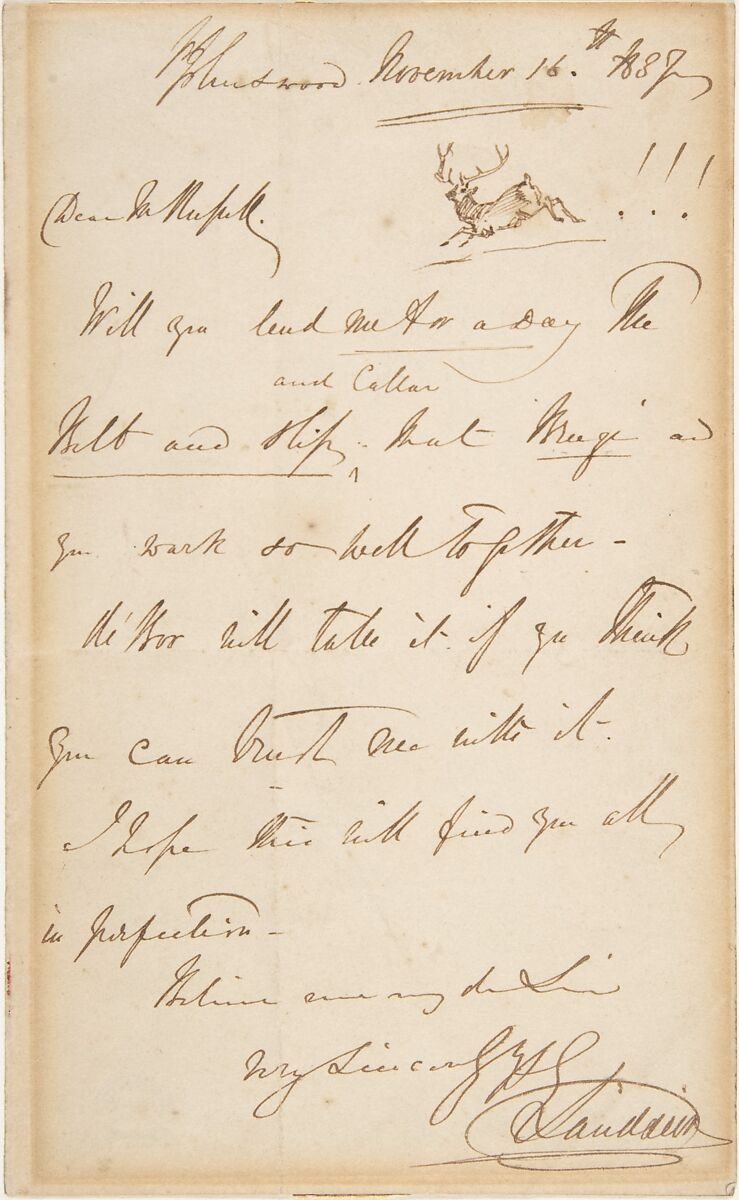 St Johns wood November 16.th 1837
Dear Mr Russell.
!!!
Will you lend me for a Day The
and Collar
Belt and slip ^ that and
you work so well together -
will take it if you think
you can trust me with it.
I hope this will find you all
in perfection -
Believe me my dr Sir
very Sincerely Yrs
E Landseer